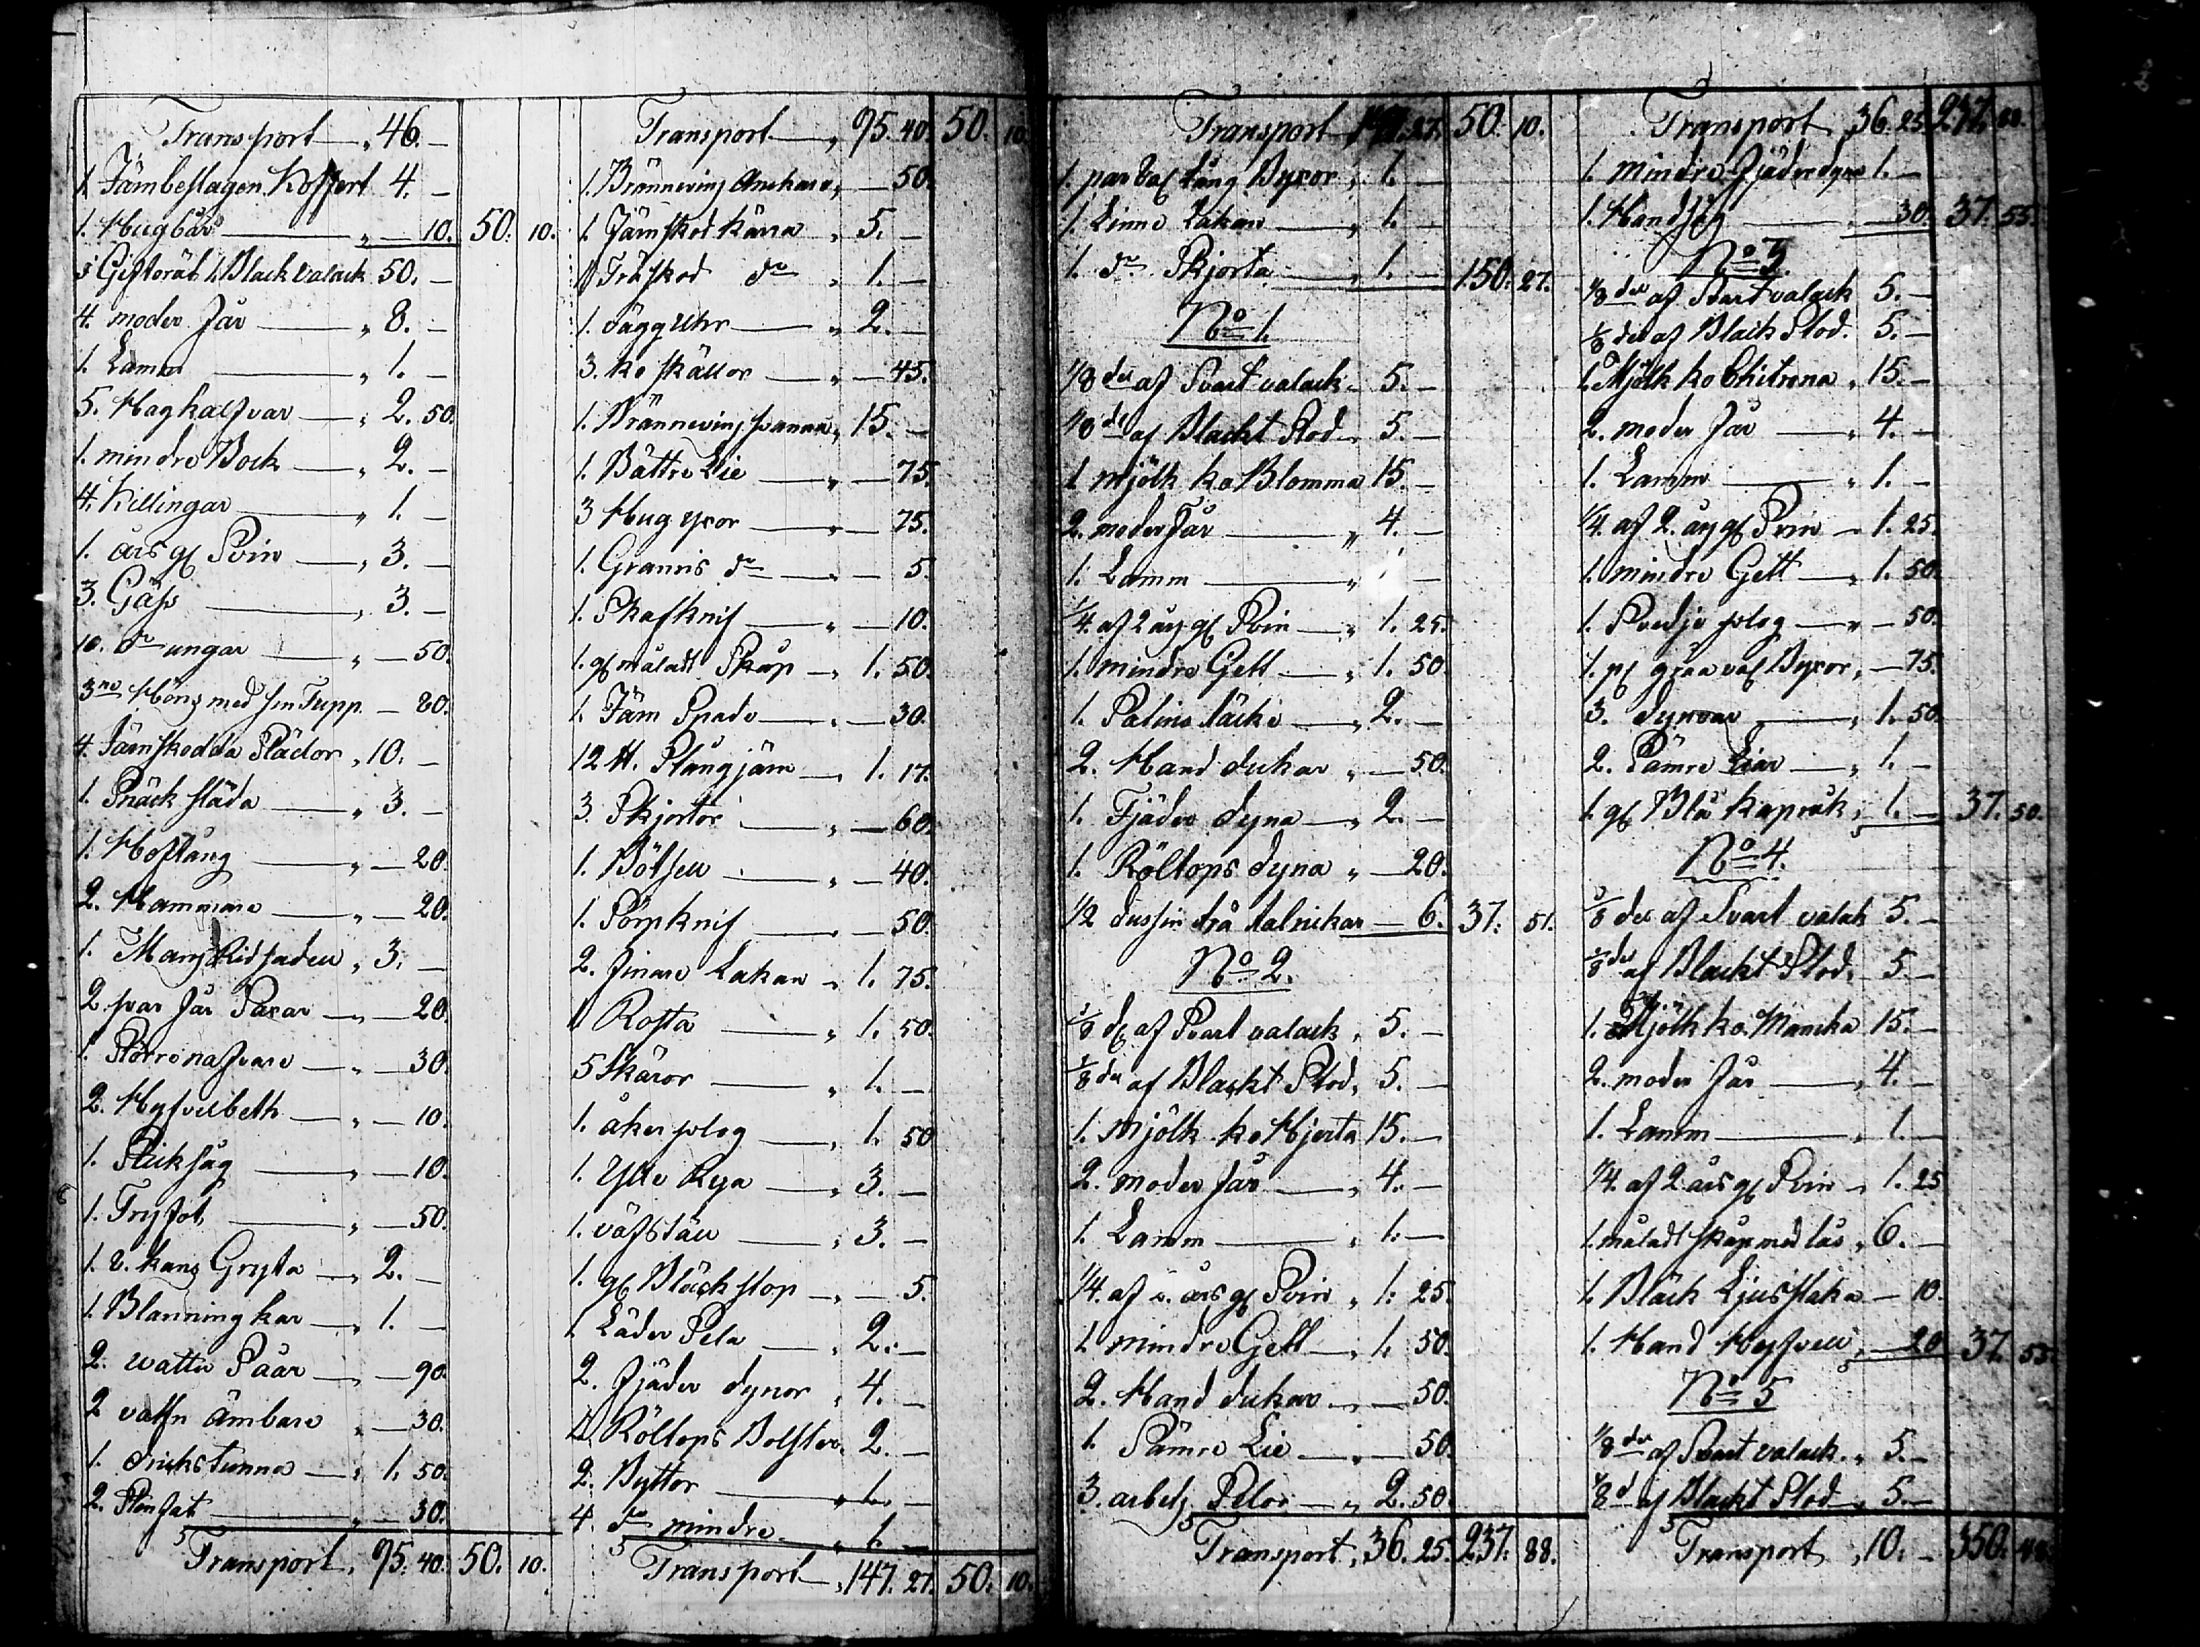 Transport „ 46. —
1. Järnbeslagen Koffert 4. —
1. Hugbår „ — 10. 50. 10.
5 Gifteråt 1. Black valack 50. —
4. moder får „ 8. —
1. Lamm „ 1. —
5. Hag kalfvar „ 2. 50.
1. mindre Bock „ 2. —
4. Killingar „ 1. —
1. års gl Svin „ 3. —
3. Gäss „ 3. —
10. do ungar „ — 50.
3ne Höns med sin Tupp — 80.
4. Järnskodda Slädor „ 10. —
1. Snäck släda „ 3. —
1. Hoftång „ — 20.
2. Hammare „ — 20.
1. Mans Ridsadel „ 3. —
2. par får Saxar „ — 20.
1. Större nafvare „ — 30.
2. Hyfvelbeth „ — 10.
1. Sticksåg „ — 10.
1. Trijfot „ — 50.
1. 8. kans Gryta „ 2. —
1. Blanning kar „ 1. —
2. watten Såar „ — 90.
2 vattn Ämbare „ — 30.
1. Drickstunna „ 1. 50.
2. Stenfat „ — 30.
Transport „ 95. 40. 50. 10.
Transport „ 95. 40. 50. 10.
1. Brännevins Anckare „ — 50.
1. Järnskod Kärra „ 5. —
1 Träskod do „ 1. —
1. Vägg Uhr „ 2. —
3. Ko skällor „ — 45.
1. Brännevins panna „ 15. —
1. Bättre Lie „ — 75.
3 Hug yxor „ — 75.
1. Grannis do „ — 5.
1. Skafknif „ — 10.
1. gl måladt Skåp „ 1. 50.
1. Järn Spade „ — 30.
12 ℔. Stångjärn „ 1. 17.
3. Skjortor „ — 60.
1. Bötsell „ — 40.
1. Sörpknif „ — 50.
2. finare Lakan „ 1. 75.
1 Rosta „ 1. 50.
5 Skäror „ 1. —
1. åker plog „ 1. 50
1. Ylle Rya „ 3. —
1. väfställ „ 3. —
1. gl Bläckstop „ — 5.
1 Läder Sela „ 2. —
2. fjäder dynor „ 4. —
4. Röltops Bolster „ 2. —
2. Byttor „ 1. —
4. do mindre „ 1. —
Transport „ 147. 27. 50. 10.
Transport 147. 27. 50. 10.
1. par Byxor „ 1. —
1. Linne Lakan „ 1. —
1. do Skjorta „ 1. — 150. 27.
No 1.
1/8 del af Svart valack „ 5. —
1/8 del af Blackt Stod „ 5. —
1 mjölk ko Blomma 15. —
2. moder får „ 4. —
1. Lamm „ 1 —
1/4. af 2 års gl Svin „ 1. 25.
1. mindre Gett „ 1. 50.
1. Satins täcke „ 2. —
2. Hand dukar „ — 50.
1. Fjäder dyna „ 2. —
1. Röltops dyna „ — 20.
1/2 dussin trä talrikar — 6. 37. 51.
No 2.
1/8 dl af Svart valack „ 5. —
1/8 del af Blackt Stod „ 5. —
1. mjölk ko Hjerta 15. —
2. moder får „ 4. —
1. Lamm „ 1. —
1/4. af 2. års gl Svin „ 1. 25.
1. mindre Gett „ 1. 50.
2. Hand dukar „ — 50.
1. Sämre Lie „ — 50.
3. arbets Selor „ 2. 50.
Transport „ 36. 25. 237. 88.
Transport „ 36. 25. 237. 88.
1. mindre Fjäderdyna 1. —
1. Handsåg „ — 30. 37. 55.
No 3.
1/8 del af Svart valack 5. —
1/8 del af Black Stod. 5. —
1. Mjölk ko Chitrona „ 15. —
2. moder får „ 4. —
1. Lamm „ 1. —
1/4. af 2. års gl Svin „ 1. 25.
1. mindre Gett „ 1. 50.
1. Svedje plog „ — 50.
1. pl Byxor „ — 75.
3. dynvar „ 1. 50.
2. Sämre Liar „ 1. —
1. gl Blå Kapråk „ 1. — 37. 50.
No 4.
1/8 del af Svart valak 5. —
1/8 del af Blackt Stod „ 5. —
1. Mjölk ko. Manika 15. —
2. moder får „ 4. —
1. Lamm „ 1. —
1/4. af 2 års gl Svin „ 1. 25
1. måladt skåp med lås „ 6. —
1. Bläck Ljusstaka — 10.
1. Hand Hyfvell „ — 20 37. 55.
No 5
1/8 del af Svart valack. „ 5. —
1/8 d af Blackt Stod „ 5. —
Transport „ 10. — 350.